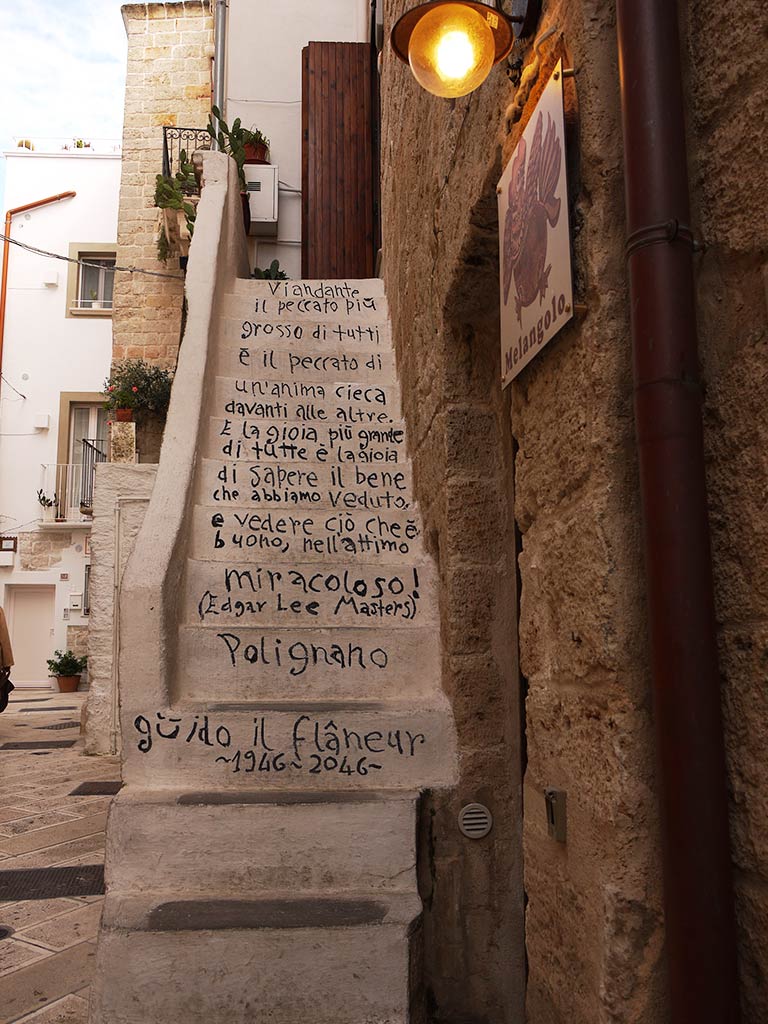 Viandante
il peccato più
grosso di tutti
è il peccato di
un'anima cieca
davanti alle altre.
E la gioia più grande
di tutte è la gioia
di sapere il bene
che abbiamo veduto,
e vedere ciò che è
buono, nell'attimo
miracoloso!
(Edgar Lee Masters)
Polignano
guido il flâneur
~1946~2046~
Melangolo